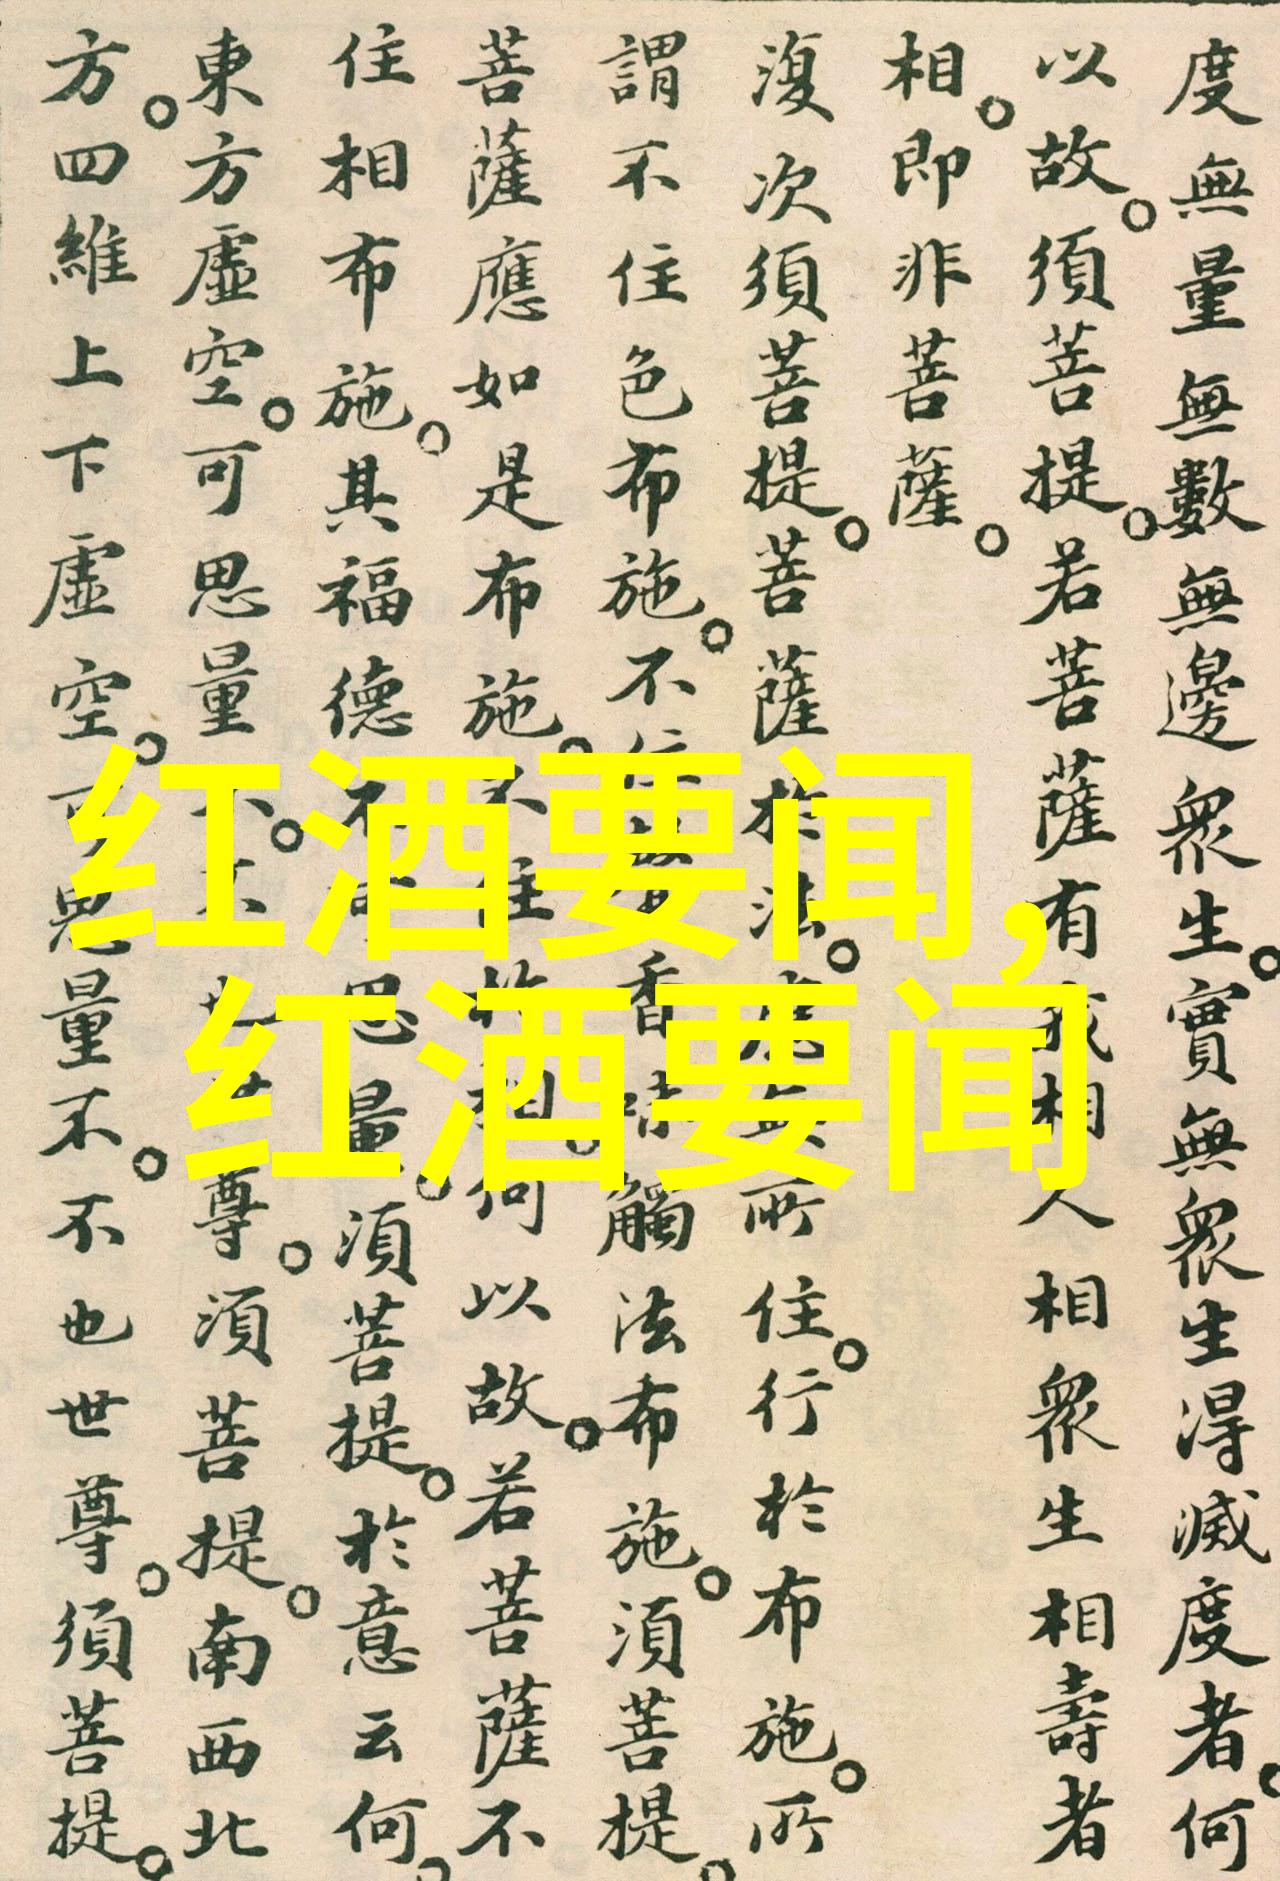 度無量無數無邊眾生。實無眾生得滅度者。何
以故。須菩提。若菩薩有我相人相眾生相壽者
相。即非菩薩。
復次須菩提。菩薩於法。應無所住。行於布施。所
謂不住色布施。不住聲香味觸法布施。須菩提。
菩薩應如是布施。不住於相。何以故。若菩薩不
住相布施。其福德不可思量。須菩提。於意云何。
東方虛空。可思量不。不也世尊。須菩提。南西北
方。四維上下虛空。可思量不。不也世尊。須菩提。
红酒要闻,
红酒要闻